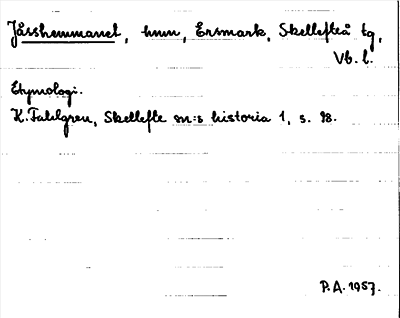 Jåsshemmanet, hmn, Ersmark, Skellefteå tg,
Vb. l.
Etymologi.
K. Fahlgren, Skellefte sn:s historia 1, s. 98.
P.A. 1957.